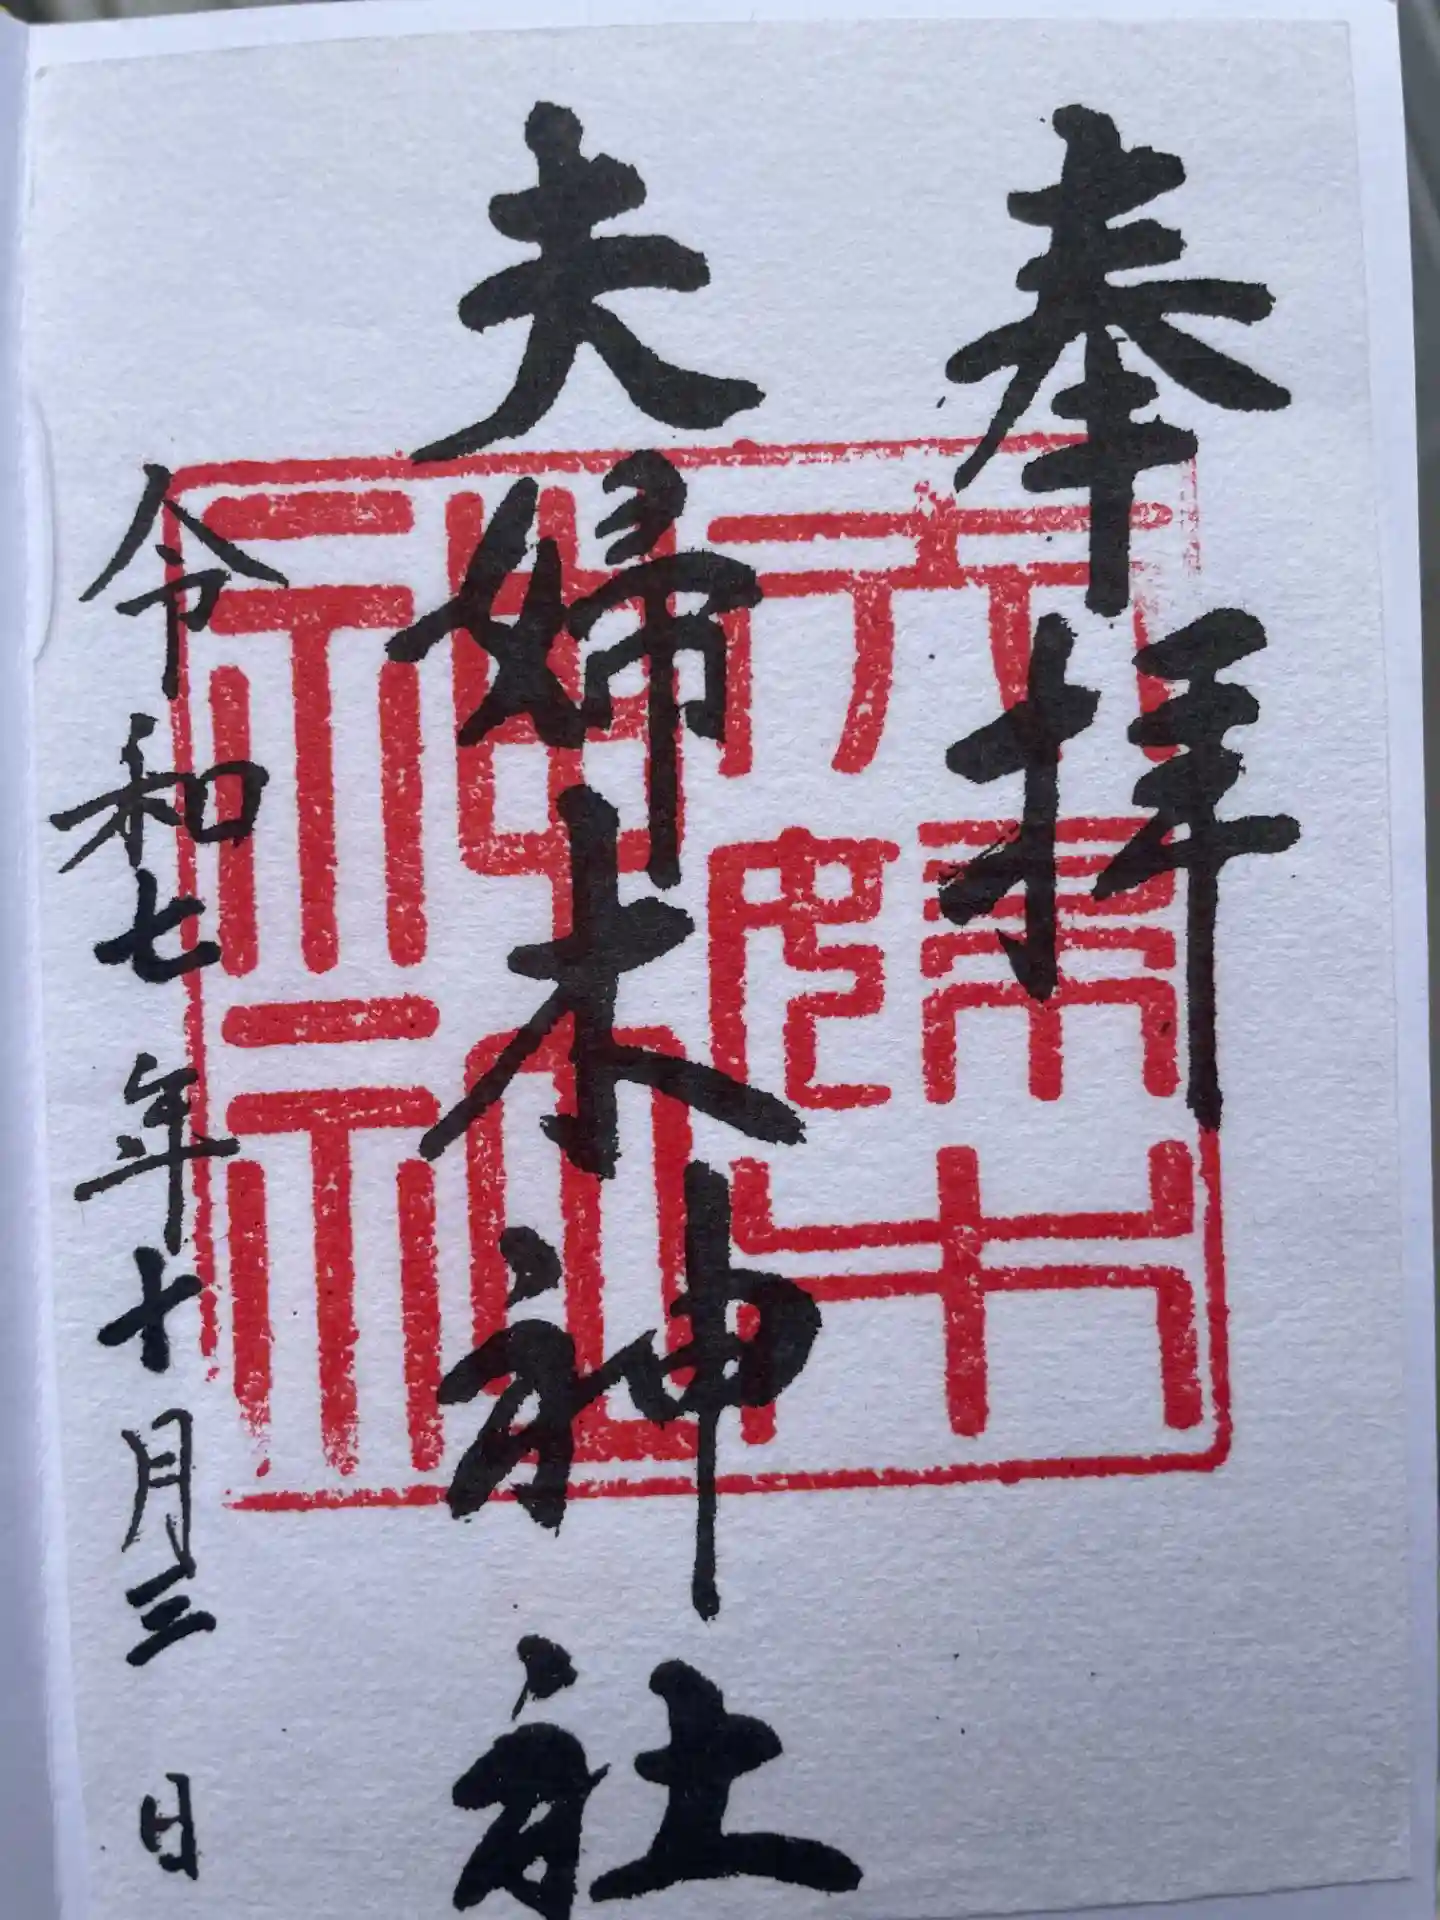 奉拝
夫婦木神社
令和七年十月三日